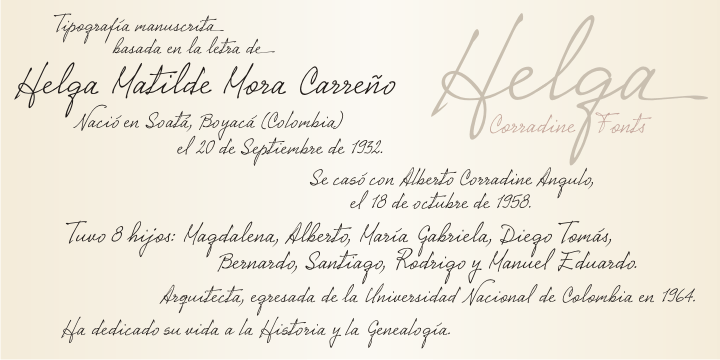 Tipografía manuscrita
basada en la letra de
Helga Matilde Mora Carreño
Nació en Soatá, Boyacá (Colombia)
el 20 de Septiembre de 1932.
Helga
Corradine Fonts
Se casó con Alberto Corradine Angulo,
el 18 de octubre de 1958.
Tuvo 8 hijos: Magdalena, Alberto, María Gabriela, Diego Tomás,
Bernardo, Santiago, Rodrigo y Manuel Eduardo.
Arquitecta, egresada de la Universidad Nacional de Colombia en 1964.
Ha dedicado su vida a la Historia y la Genealogía.